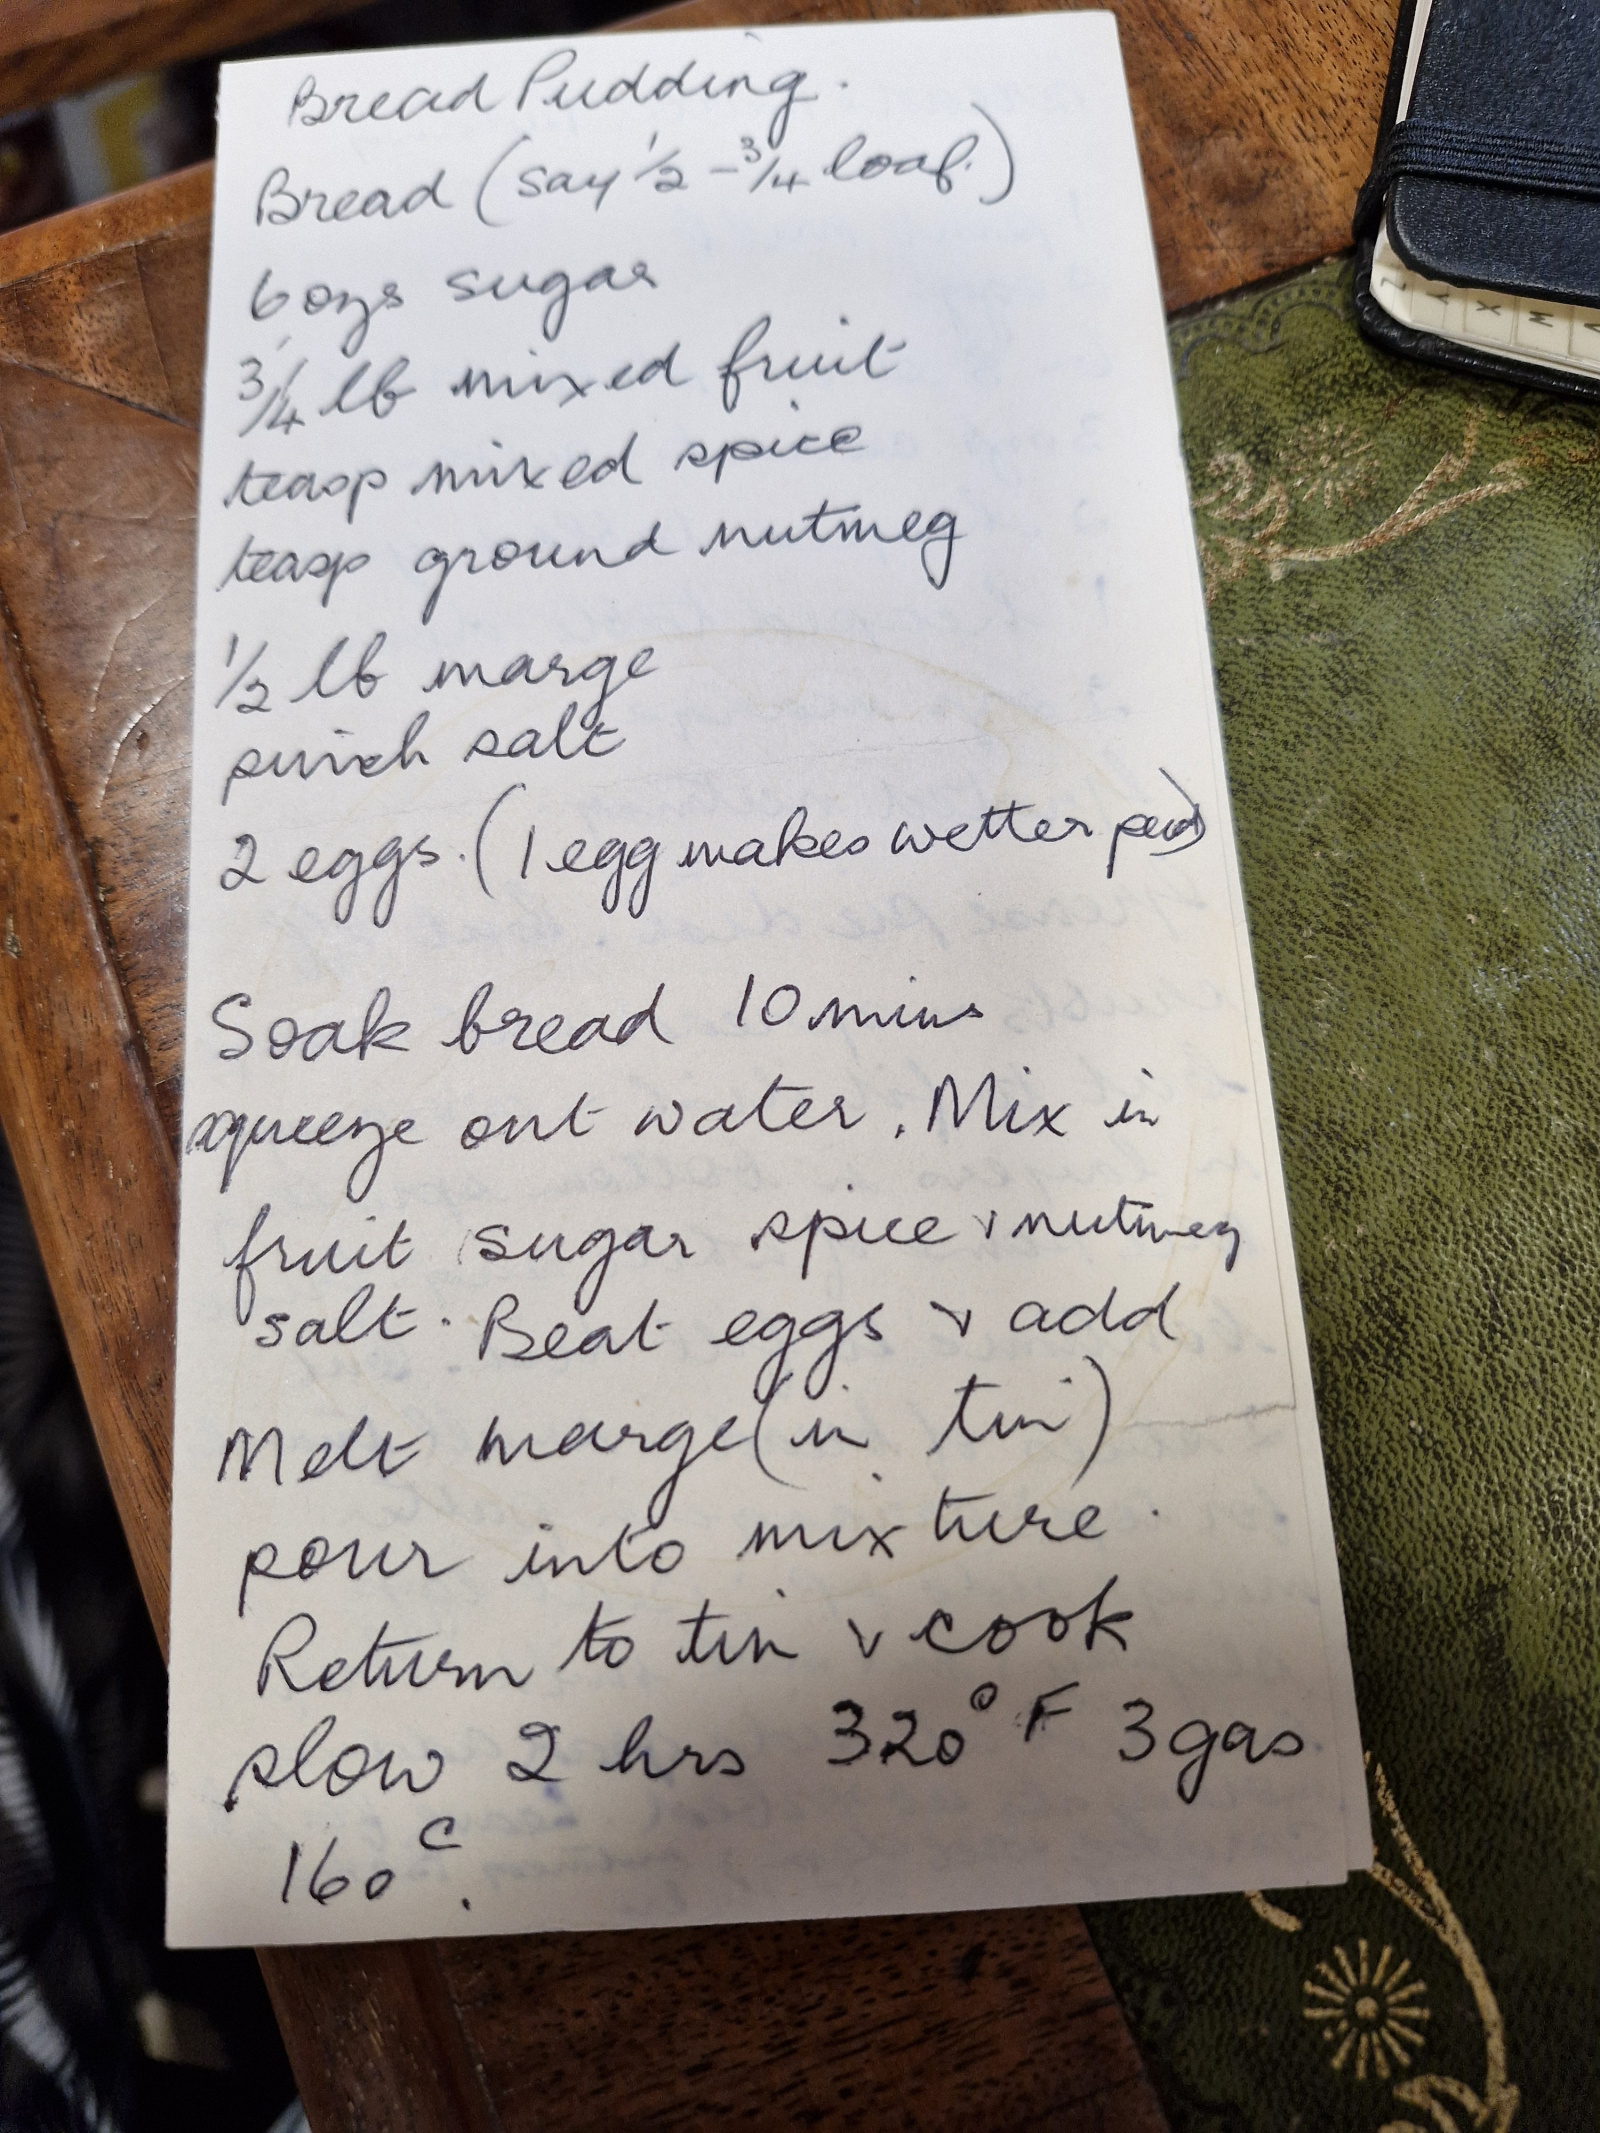 Bread Pudding.
Bread (say 1/2 - 3/4 loaf.)
6 ozs sugar
3/4 lb mixed fruit
teasp mixed spice
teasp ground nutmeg
1/2 lb marge
pinch salt
2 eggs. (1 egg makes wetter pud)
Soak bread 10 mins
squeeze out water. Mix in
fruit sugar spice & nutmeg
salt. Beat eggs & add
Melt marge (in tin)
pour into mixture.
Return to tin & cook
slow 2 hrs 320° F 3 gas
160°C.